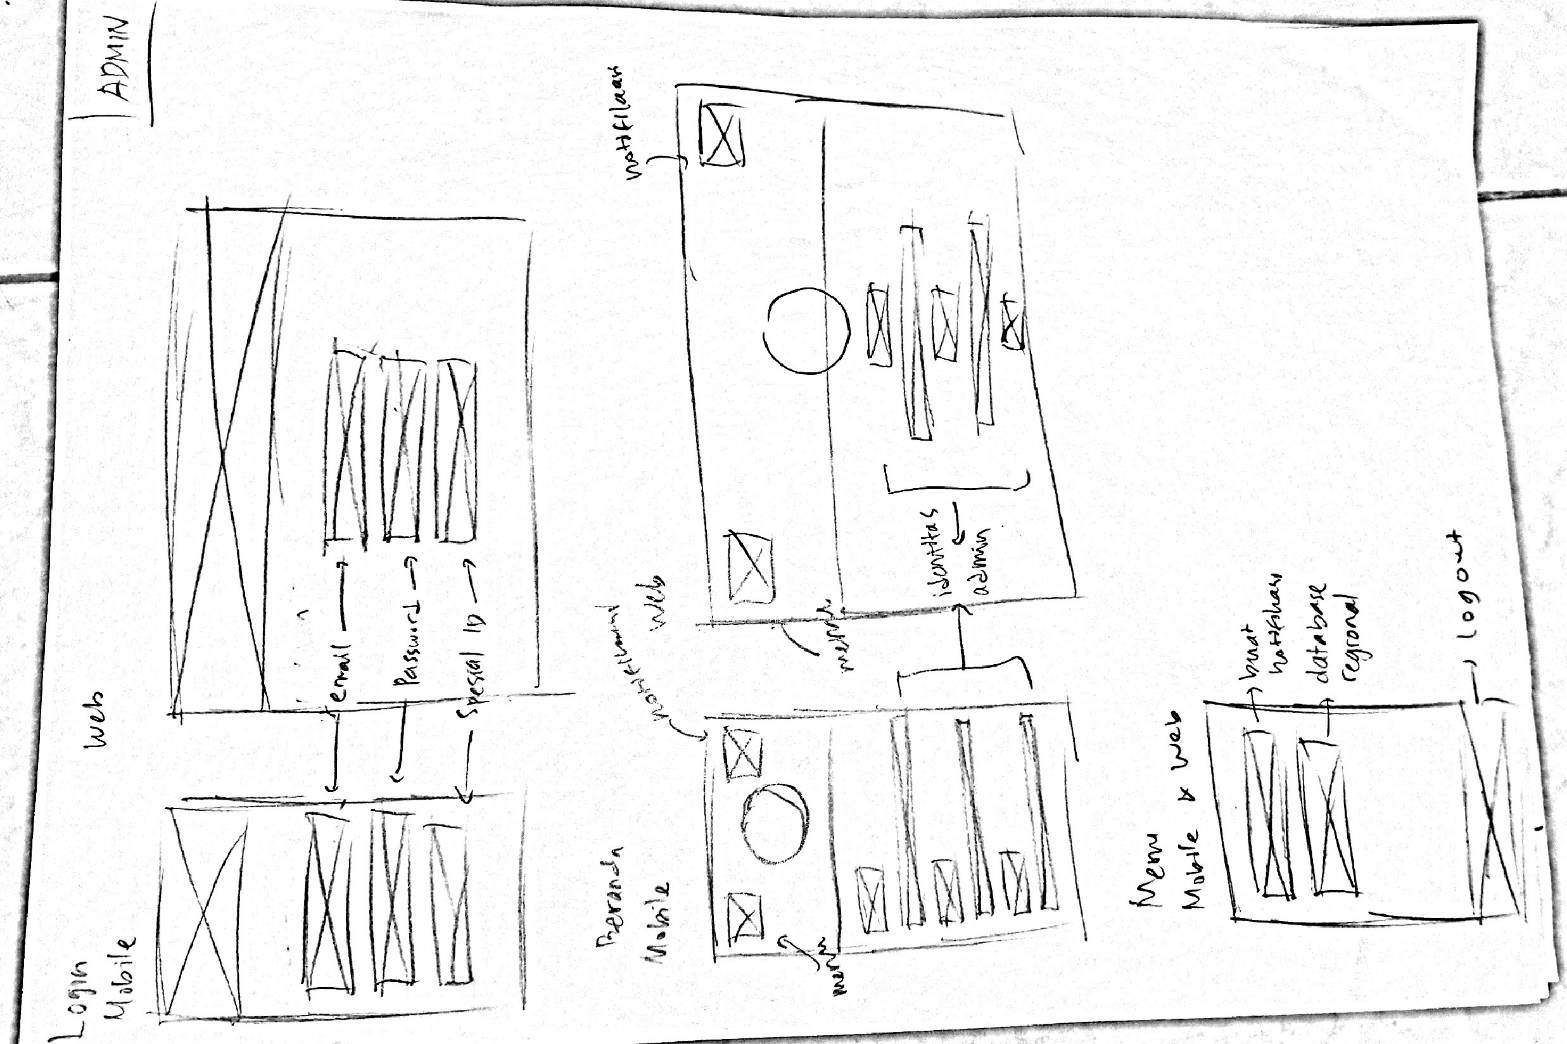 ADMIN
Login
Mobile
Web
email
Password
Spesial ID
Beranda
Mobile
Web
notifikasi
notifikasi
menu
menu
identitas
admin
Menu
Mobile & Web
buat
notifikasi
database
regional
logout